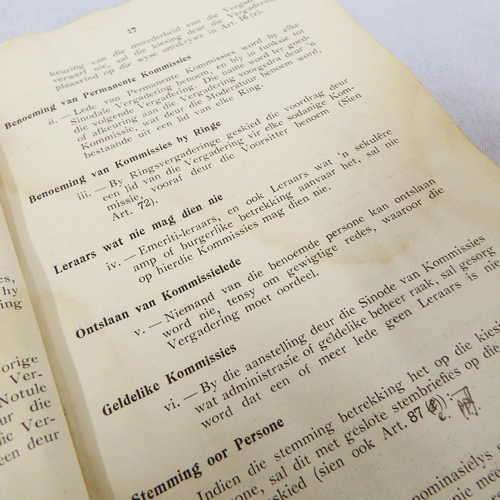 37
keuring van die meerderheid van die Vergadering
plaasvind op die wyse omskrywe in Art. 16 (e).
Benoeming van Permanente Kommissies
ii. — Lede van Permanente Kommissies word by elke
Sinodale Vergadering benoem, en bly in funksie tot
die volgende Vergadering. Die naamlys word ter goed-
of afkeuring aan die Vergadering voorgedra deur 'n
Kommissie, wat deur die Moderatuur benoem word,
bestaande uit een lid van elke Ring.
Benoeming van Kommissies by Ringe
iii. — By Ringsvergaderinge geskied die voordrag deur
een lid van die Vergadering vir elke sodanige Kom-
missie, vooraf deur die Voorsitter benoem (Sien
Art. 72).
Leraars wat nie mag dien nie
iv. — Emeriti-leraars, en ook Leraars wat 'n sekulêre
amp of burgerlike betrekking aanvaar het, sal nie
op hierdie Kommissies mag dien nie.
Ontslaan van Kommissielede
v. — Niemand van die benoemde persone kan ontslaan
word nie, tensy om gewigtige redes, waaroor die
Vergadering moet oordeel.
Geldelike Kommissies
vi. — By die aanstelling deur die Sinode van Kommissies
wat administrasie of geldelike beheer raak, sal gesorg
word dat een of meer lede geen Leraars is nie
Stemming oor Persone
Indien die stemming betrekking het op die kies
sal dit met geslote stembriefies op die
geskied (sien ook Art. 37
nominasielys
es,
by
ering
orige
Ver-
Notule
ur die
ie Ver-
en deur